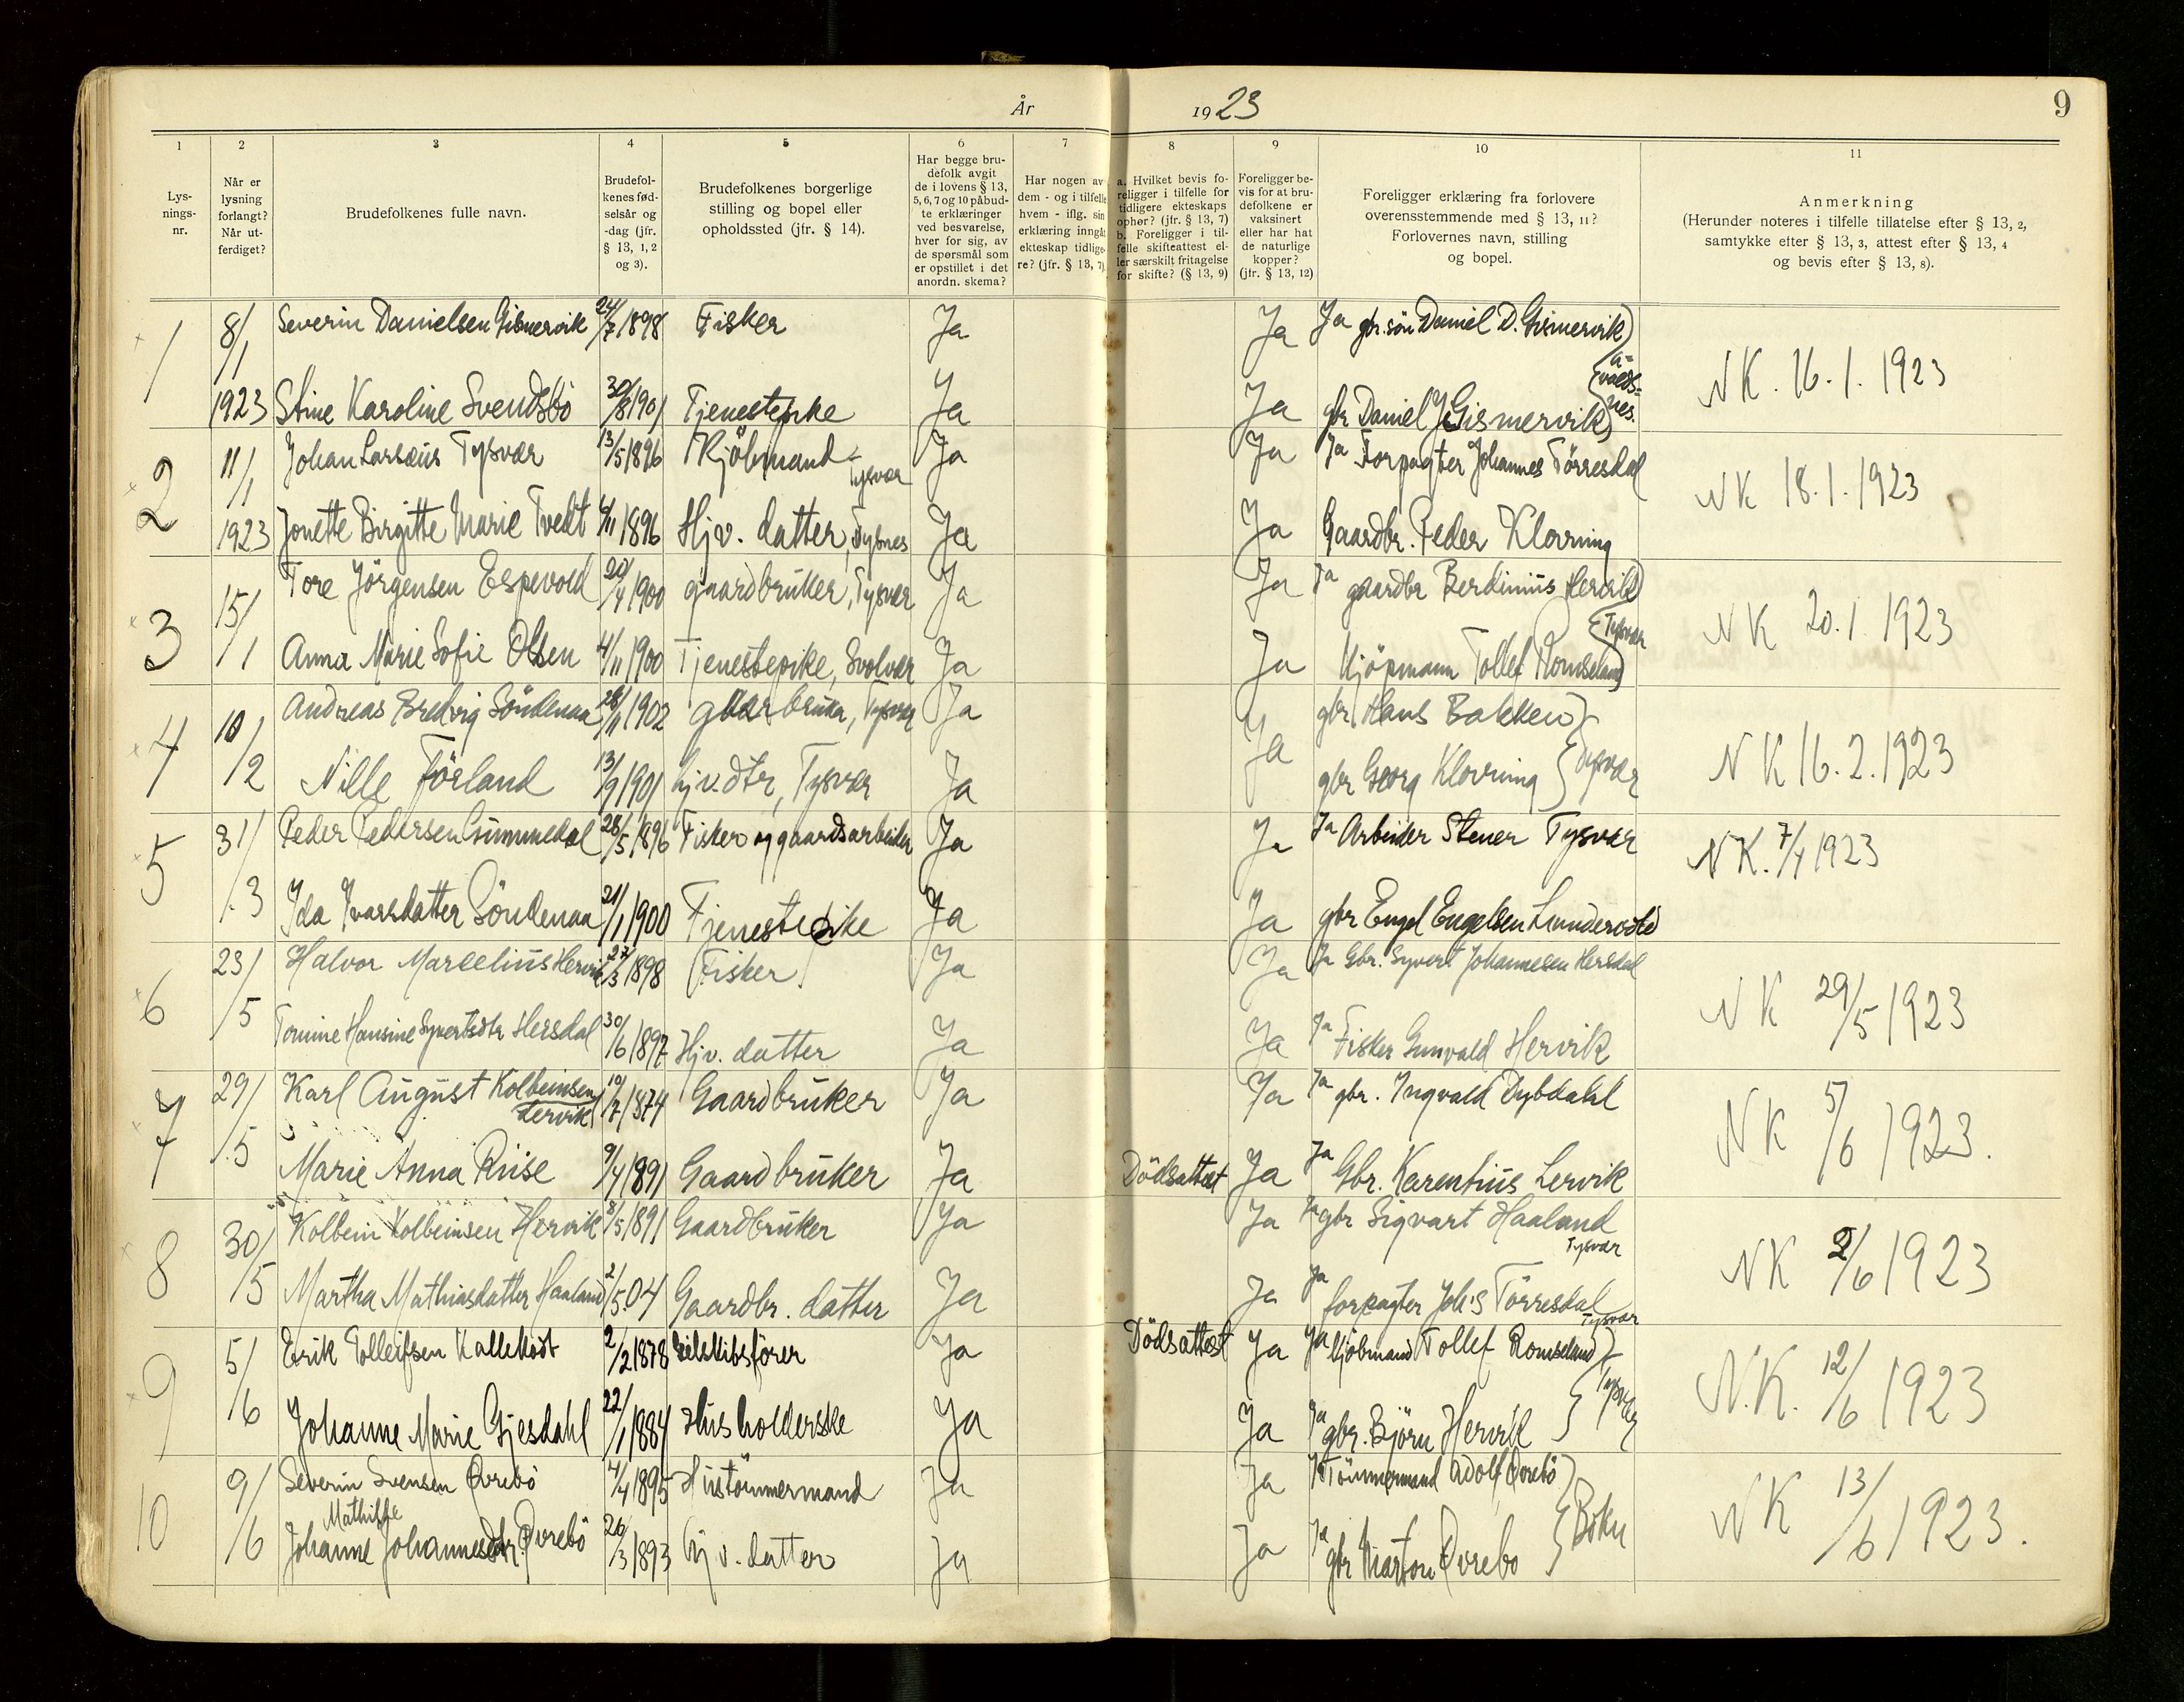 År 1923
9
1 2 3 4 5 6 7 8 9 10 11
Lys-
nings-
nr.
Når er
lysning
forlangt?
Når ut-
ferdiget?
Brudefolkenes fulle navn.
Brudefol-
kenes fød-
selsår og
-dag (jfr.
§ 13, 1, 2
og 3).
Brudefolkenes borgerlige
stilling og bopel eller
opholdssted (jfr. § 14).
Har begge bru-
defolk avgit
de i lovens § 13,
5, 6, 7 og 10 påbud-
te erklæringer
ved besvarelse,
hver for sig, av
de spørsmål som
er opstillet i det
anordn. skema?
Har nogen av
dem - og i tilfelle
hvem - iflg. sin
erklæring inngåt
ekteskap tidlige-
re? (jfr. § 13, 7)
a. Hvilket bevis fo-
religger i tilfelle for
tidligere ekteskaps
ophør? (jfr. § 13, 7)
b. Foreligger i til-
felle skifteattest el-
ler særskilt fritagelse
for skifte? (§ 13, 9)
Foreligger be-
vis for at bru-
defolkene er
vaksinert
eller har hat
de naturlige
kopper?
(jfr. § 13, 12)
Foreligger erklæring fra forlovere
overensstemmende med § 13, 11?
Forlovernes navn, stilling
og bopel.
Anmerkning
(Herunder noteres i tilfelle tillatelse efter § 13, 2,
samtykke efter § 13, 3, attest efter § 13, 4
og bevis efter § 13, 8).
1 8/1 Severin Danielsen Gismervik 24/7 1898 Fisker Ja Ja Ja gbr.søn Daniel D. Gismervik
NK. 16.1.1923
1923 Stine Karoline Svendsbö 30/8 1901 Tjenestepike Ja Ja gbr Daniel J Gismervik
2 11/1 Johan Larsæus Tysvær 13/5 1896 Kjöbmand Tysvær Ja Ja Ja Forpagter Johannes Törresdal
NK 18.1.1923
1923 Jonette Birgitte Marie Tvedt 4/11 1896 Hjv. datter, Ja Ja Gaardbr. Peder Klovning
3 15/1 Tore Jörgensen Espevold 20/4 1900 gaardbruker, Tysvær Ja Ja Ja gaardbr Berdinius Hervik
Tysvær
NK 20.1 1923
Anna Marie Sofie Olsen 4/11 1900 Tjenestepike, Svolvær Ja Ja Kjöpmann Tollef Romseland
4 10/2 Andreas Bredvig Söndenaa 28/11 1902 gaarbruker, Tysvær Ja Ja gbr Hans Bakken
Nille Förland 13/9 1901 hjv.dtr, Tysvær Ja gbr Georg Klovning Tysvær
NK 16.2.1923
5 31/3 Peder Pedersen Grimmedal 28/5 1896 Fisker og gaardsarbeider Ja Ja Ja Arbeider Stener Tysvær
NK. 7/4 1923
Ida Ivarsdatter Söndenaa 21/1 1900 Tjenestepike Ja Ja gbr Engel Engelsen Lundervold
6 23/5 Halvor Marcelius Hervik 27/3 1898 Fisker Ja Ja Ja Gbr. Syvert Johannesen Hersdal
NK 29/5 1923
Tomine Hansine Syvertsdtr Hersdal 30/6 1897 Hjv. datter Ja Ja Ja Fisker Gunvald Hervik
7 29/5 Karl August Kolbeinsen
Lervik 10/7 1874 Gaardbruker Ja Ja Ja gbr. Ingvald Dybdahl
NK 5/6 1923.
Marie Anna Riise 9/4 1891 Gaardbruker Ja Dödsattest Ja Ja Gbr. Karentius Lervik
8 30/5 Kolbein Kolbeinsen Hervik 8/5 1891 Gaardbruker Ja Ja Ja gbr Sigvart Haaland
Tysvær
NK 2/6 1923
Martha Mathiasdatter Haaland 2/5.04 Gaardbr. datter Ja Ja Ja forpagter Joh's Törresdal
Tysvær
9 5/6 Erik Tolleifsen Kallekodt 2/2 1878 Seilskibsförer Ja Dödsattest Ja Ja Kjöbmand Tollef Romseland
Tysvær
N.K. 12/6 1923
Johanne Marie Gjesdahl 22/1 1884 Husholderske Ja Ja Ja gbr. Björn Hervik
10 9/6 Severin Svensen Øvrebö 4/4 1895 Hustömmermand Ja Ja Ja Tömmermand Adolf Øvrebö
Bokn
NK 13/6 1923.
Mathilde
Johanne Johannesdtr. Øvrebö 26/3 1893 hjv. datter Ja Ja Ja gbr Marton Øvrebo